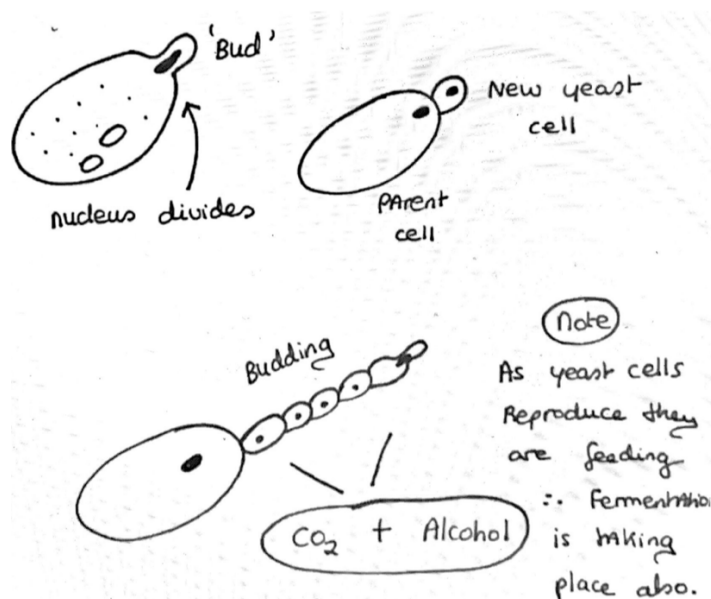 'Bud'
nucleus divides
New yeast
cell
PArent
cell
Budding
CO₂ + Alcohol
Note
As yeast cells
Reproduce they
are feeding
∴ Fermentatio
is taking
place also.